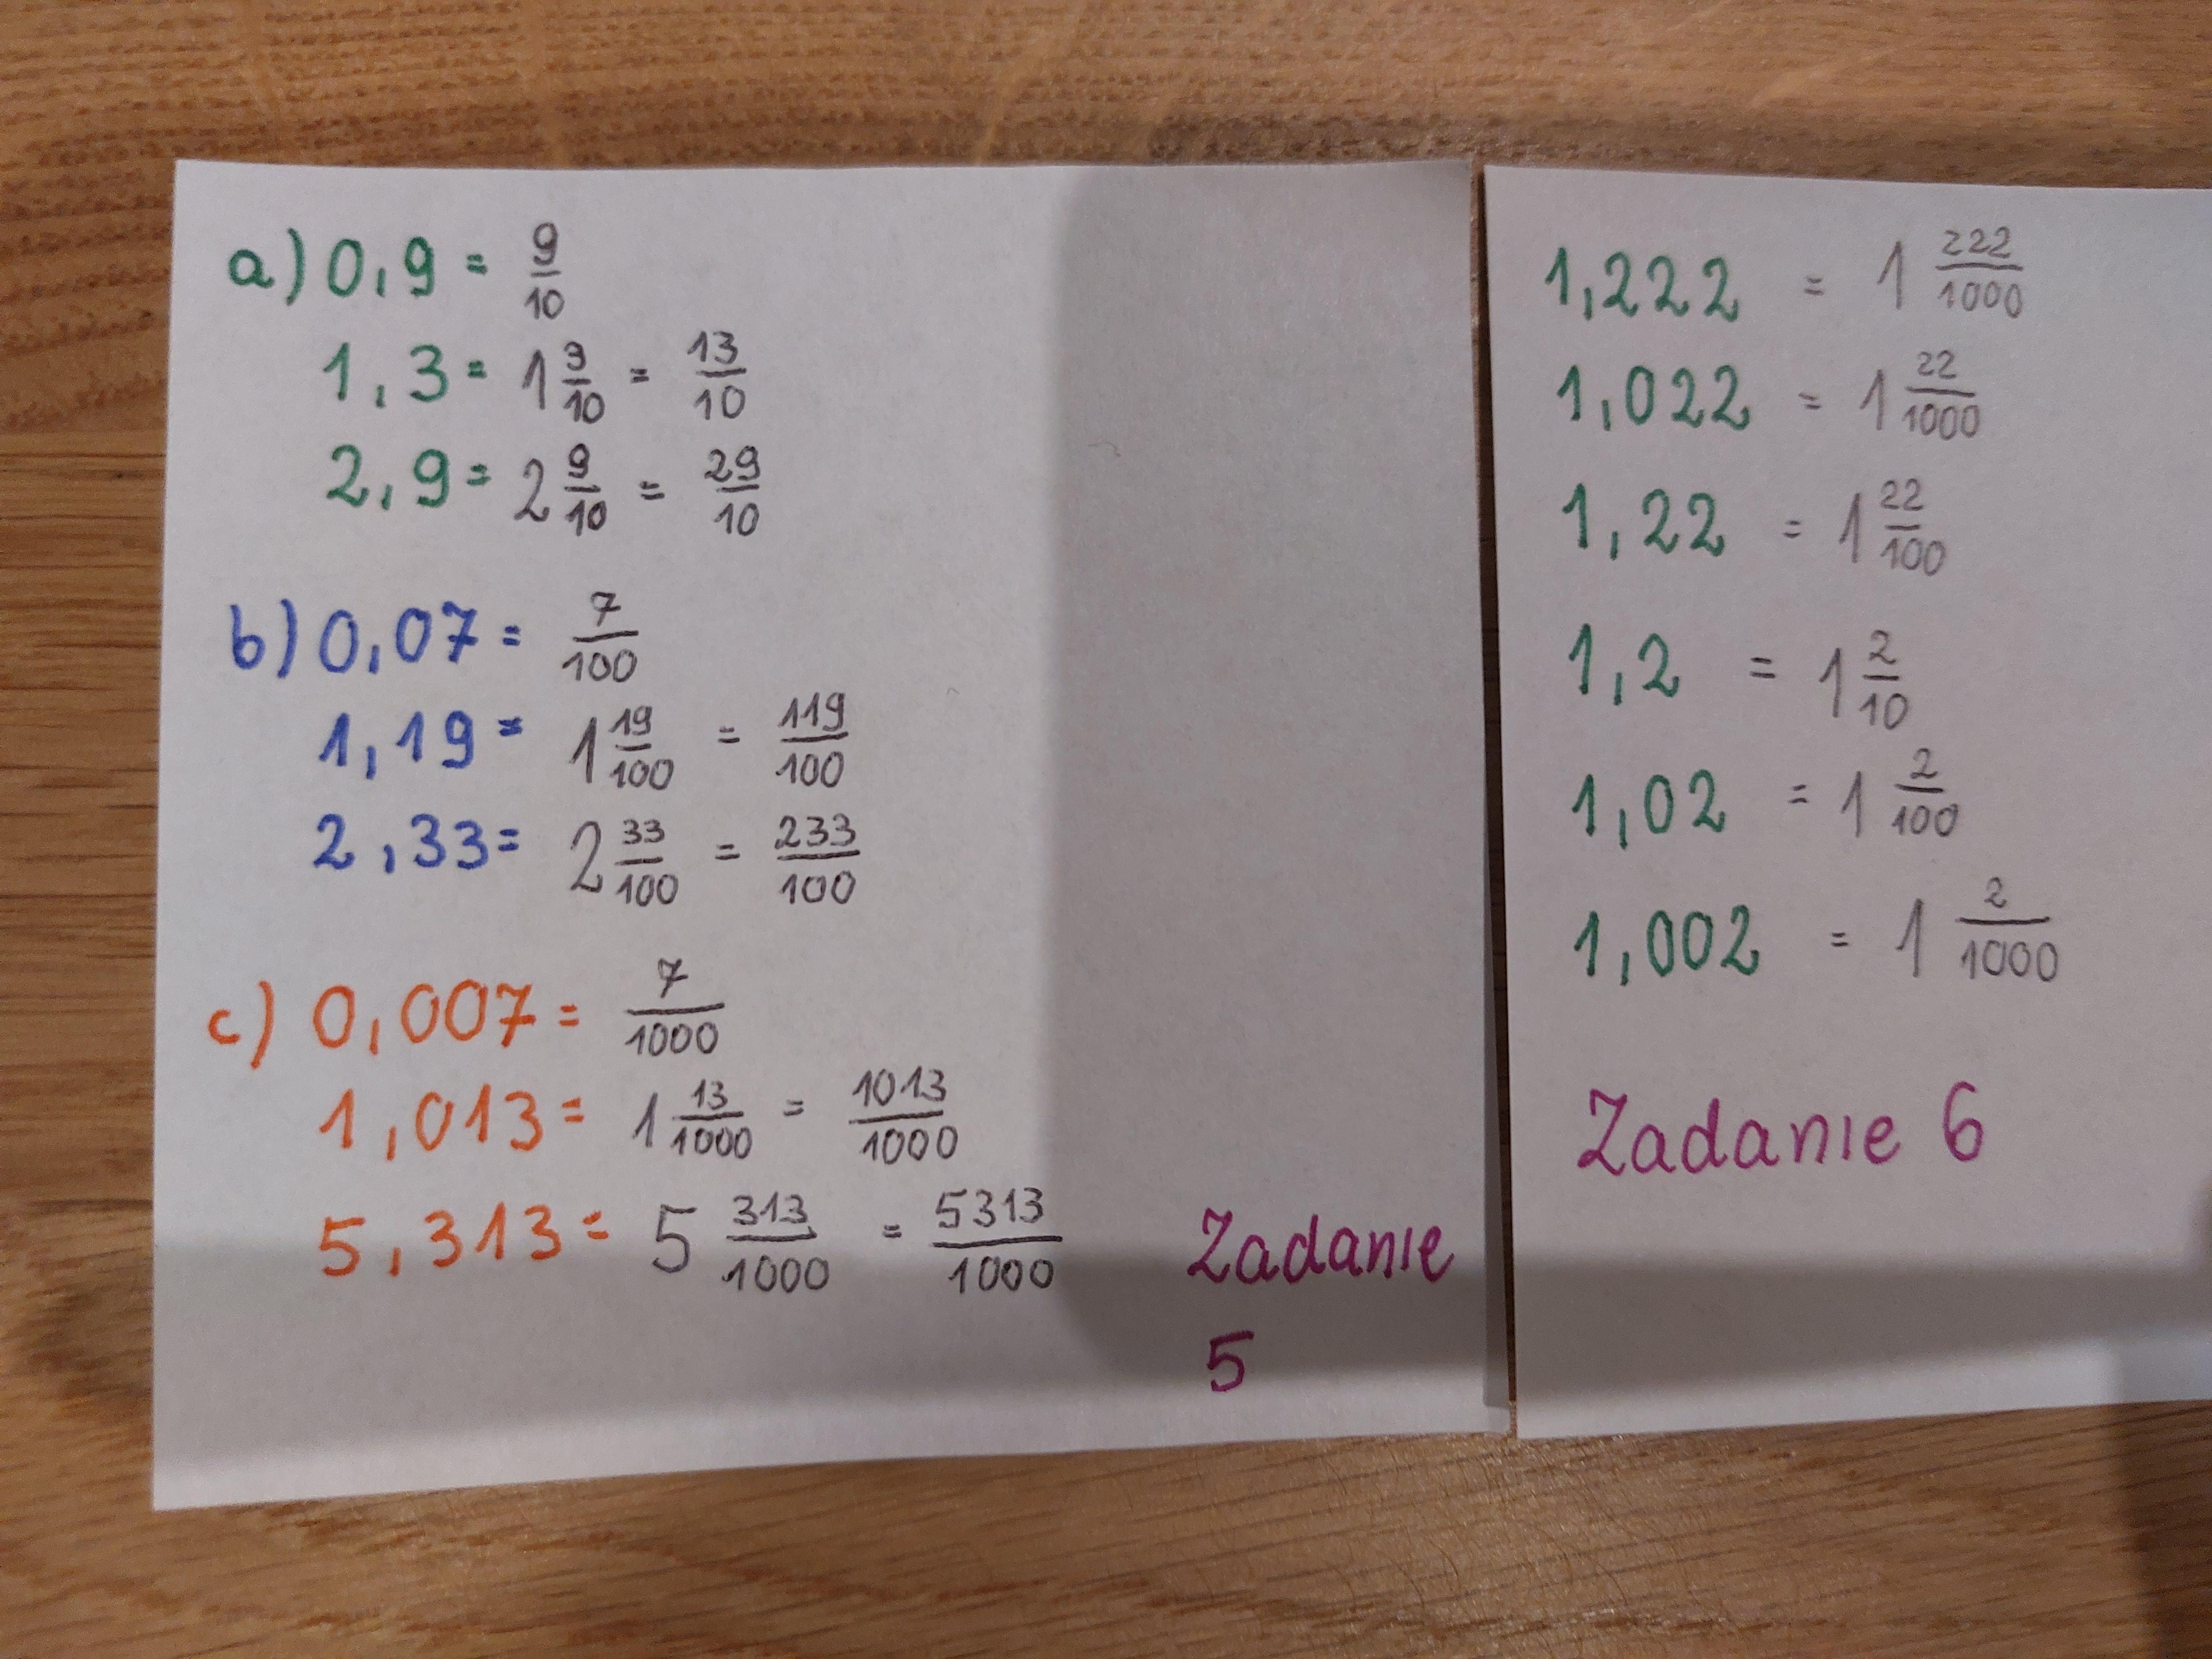 a) 0,9 = 9/10
1,3 = 1 3/10 = 13/10
2,9 = 2 9/10 = 29/10
b) 0,07 = 7/100
1,19 = 1 19/100 = 119/100
2,33 = 2 33/100 = 233/100
c) 0,007 = 7/1000
1,013 = 1 13/1000 = 1013/1000
5,313 = 5 313/1000 = 5313/1000
Zadanie
5
1,222 = 1 222/1000
1,022 = 1 22/1000
1,22 = 1 22/100
1,2 = 1 2/10
1,02 = 1 2/100
1,002 = 1 2/1000
Zadanie 6